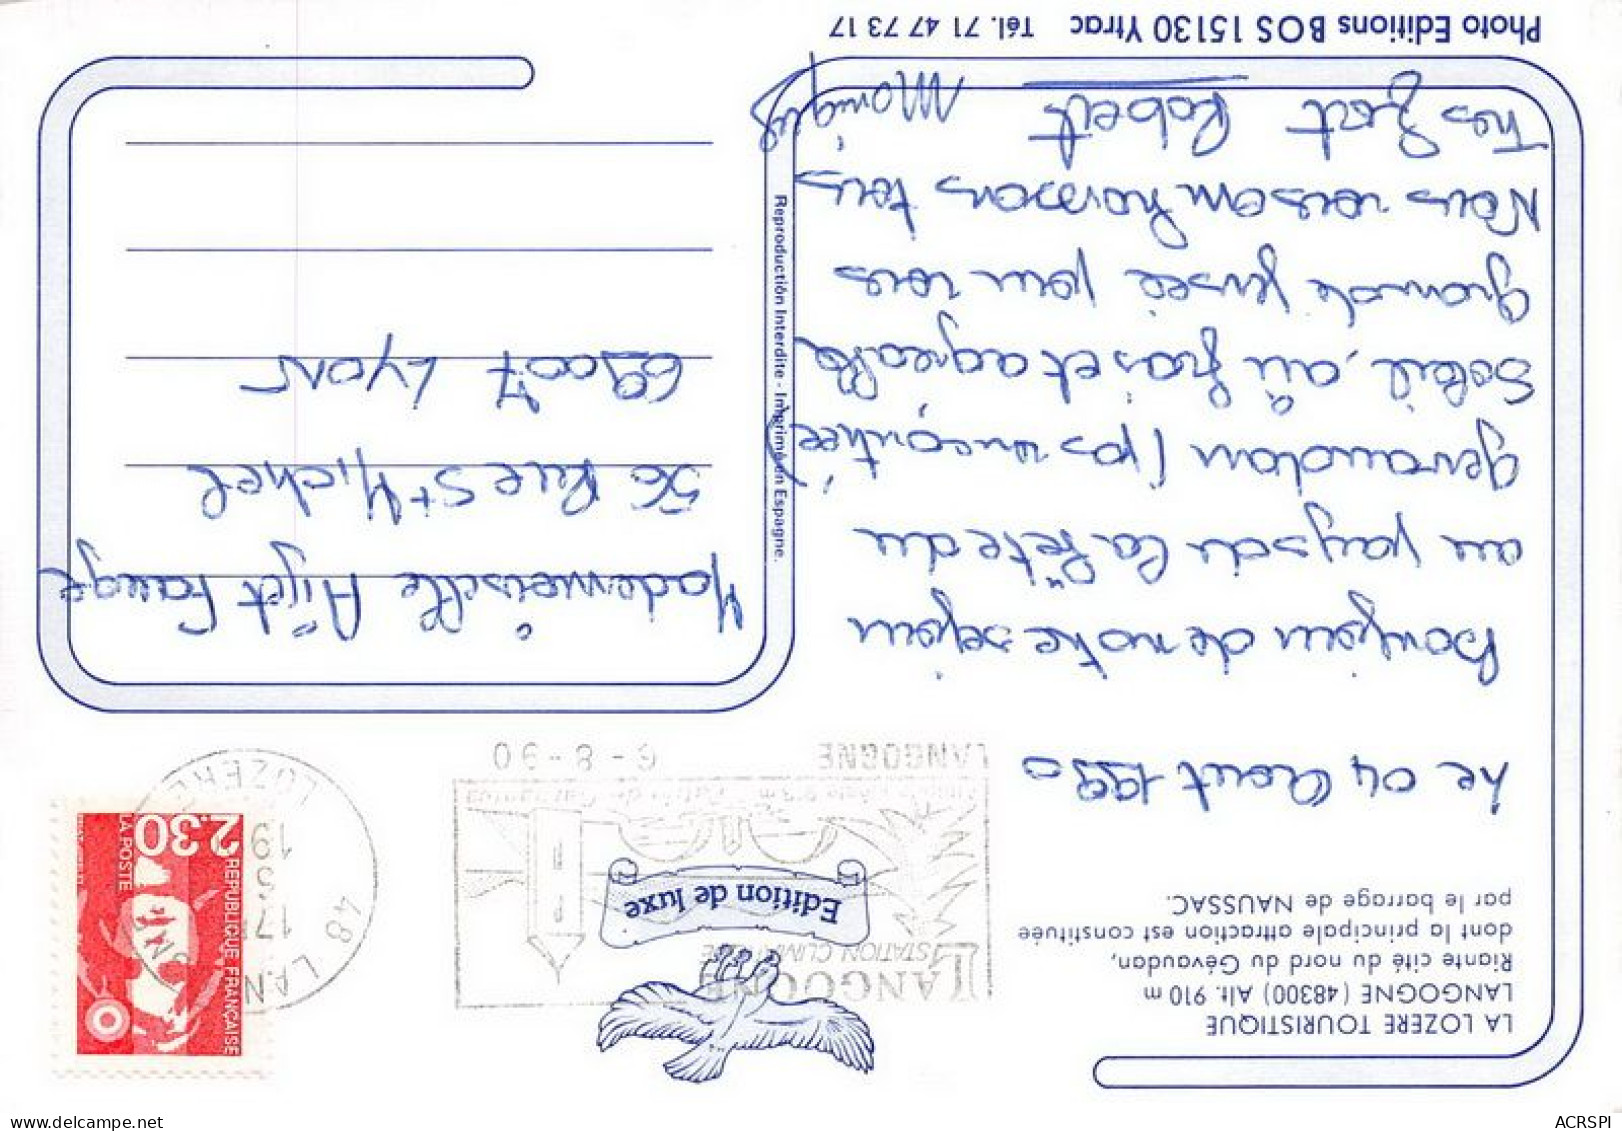 LA LOZERE TOURISTIQUE
LANGOGNE (48300) Alt. 910 m
Riante cité du nord du Gévaudan,
dont la principale attraction est constituée
par le barrage de NAUSSAC.
Edition de luxe
LANGOGNE
STATION CLIMATIQUE
LANGOGNE 6-8-90
48 LANGOGNE
17H
19
LOZERE
REPUBLIQUE FRANÇAISE
LA POSTE
2.30
Le 04 Aout 1990
Bonjour de notre sejour
au pays de la Bête du
gevaudan (pas rencontrée)
Soleil, air frais et agreable
grande pensée pour vous
Nous vous embrassons tous
Tres fort Robert Monique
Mademoiselle
56 Rue St Michel
69007 Lyon
Reproduction Interdite - Imprimé en Espagne.
Photo Editions BOS 15130 Ytrac Tél. 71 47 73 17
delcampe.net
ACRSPI